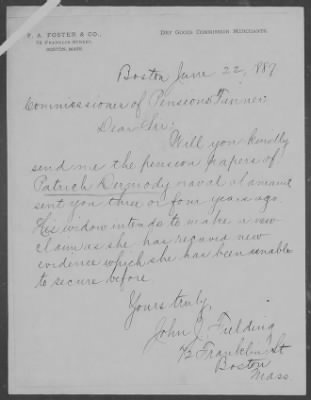 P. A. FOSTER & CO.,
72 FRANKLIN STREET,
BOSTON, MASS.
DRY GOODS COMMISSION MERCHANTS.
Boston June 22, 1889
Commissioner of Pensions Tanner:
Dear Sir:
Will you kindly
send me the pension papers of
Patrick Dermody naval claimant
sent you three or four years ago.
His widow intends to make a new
claim as she has received new
evidence which she has been unable
to secure before.
Yours truly,
John J. Fielding
72 Franklin St
Boston
Mass.